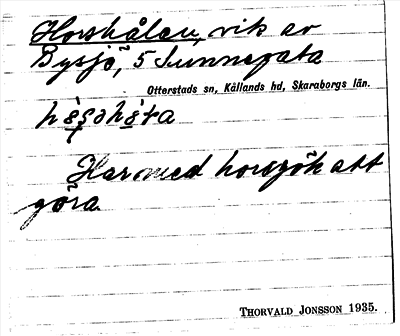 Horshålan, vik av
Bysjö, 5 Sunnegata
Otterstads sn, Kållands hd, Skaraborgs län.
Har med horsgök att
göra
THORVALD JONSSON 1935.